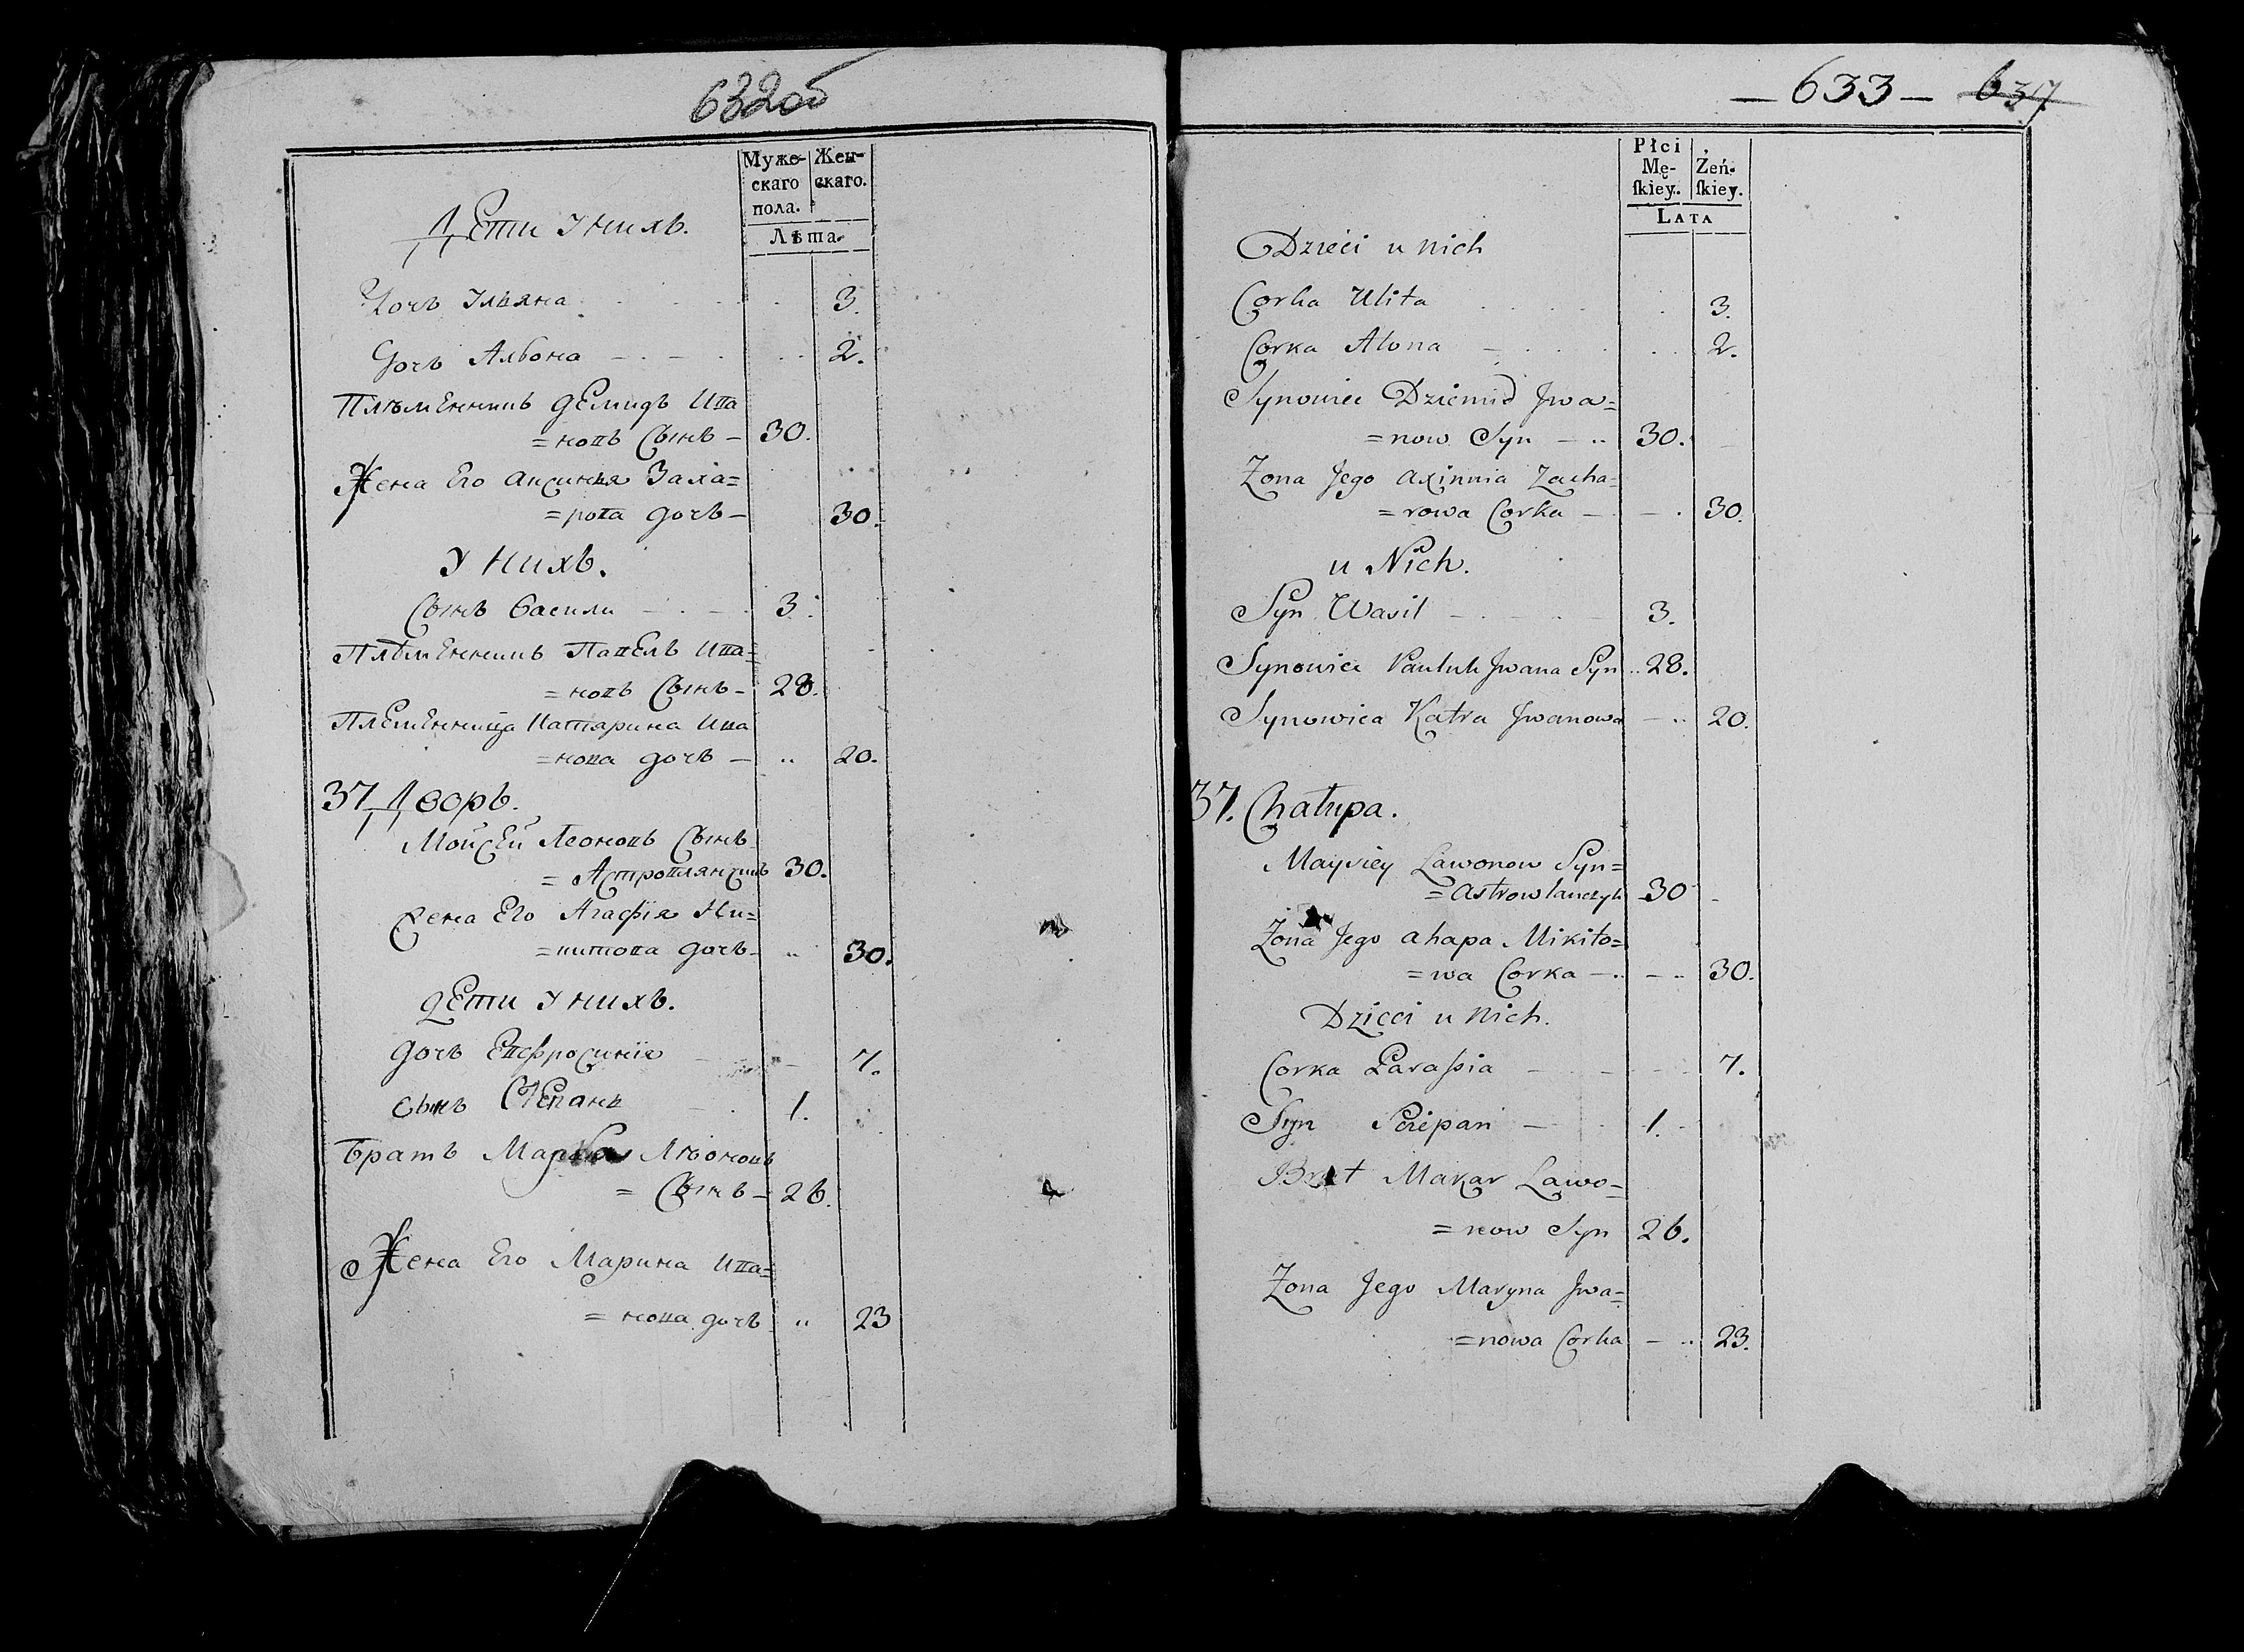 632об
Муже-
скаго
пола.
Жен-
скаго.
Лѣта.
Дети у нихъ.
Дочь Ульяна 3.
Дочь Алѣона 2.
Племенникъ Демидъ Ива
=новъ Сынъ 30.
Жена Его Аксинья Заха=
=рова дочь 30.
У нихъ.
Сынъ Василь 3.
Племенникъ Павелъ Ива=
=новъ Сынъ 28.
Племенница Катярина Ива
=нова дочь 20.
37 Дворъ.
Мойсей Леоновъ Сынъ
= Астровлянчикъ 30.
Жена Его Агафія Ни=
=китова дочь 30.
Дети у нихъ.
Дочь Евфросинія 7.
Сынъ Степанъ 1.
Братъ Леоновъ
= Сынъ 26.
Жена Его Марина Ива=
= нова дочь 23
— 633 — 637
Płci
Mę-
ſkiey.
Żeń-
ſkiey.
LATA
Dzieci u Nich
Corka Ulita 3.
Corka Alona 2.
Synowiec Dziemid Jwa=
=now Syn 30.
Zona Jego Axinnia Zacha=
=rowa Corka 30.
u Nich.
Syn Wasil 3.
Synowiec Pauluk Jwana Syn 28.
Synowica Katra Jwanowa 20.
37. Chałupa.
Maysiey Lawonow Syn=
=Astrowlanczyk 30
Zona Jego Ahapa Mikito=
=wa Corka 30.
Dzieci u Nich.
Corka Paraſsia 7.
Syn Sciepan 1.
Brat Makar Lawo=
=now Syn 26.
Zona Jego Maryna Jwa=
=nowa Corka 23.